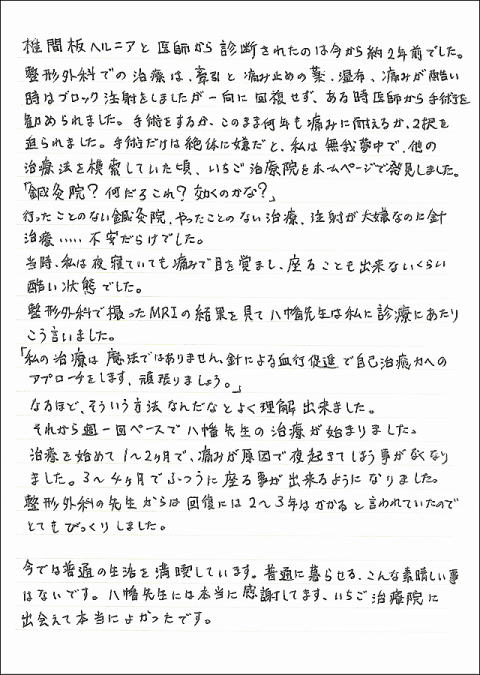 椎間板ヘルニアと医師から診断されたのは今から約2年前でした。
整形外科での治療は、牽引と痛み止めの薬、湿布、痛みが酷い
時はブロック注射をしましたが一向に回複せず、ある時医師から手術を
勧められました。手術をするか、このまま何年も痛みに耐えるか、2択を
迫られました。手術だけは絶体に嫌だと、私は無我夢中で、他の
治療法を検索していた頃、いちご治療院をホームページで発見しました。
「鍼灸院？何だろこれ？効くのかな？」
行ったことのない鍼灸院、やったことのない治療、注射が大嫌なのに針
治療‥‥‥不安だらけでした。
当時、私は夜、寝ていても痛みで目を覚まし、座ることも出来ないくらい
酷い状態でした。
整形外科で撮ったMRIの結果を見て八幡先生は私に診療にあたり
こう言いました。
「私の治療は魔法ではありません、針による血行促進で自己治癒力への
アプローチをします、頑張りましょう。」
なるほど、そういう方法なんだなとよく理解出来ました。
それから週一回ペースで八幡先生の治療が始まりました。
治療を始めて1〜2ヶ月で、痛みが原因で夜起きてしまう事がなくなり
ました。3〜4ヶ月でふつうに座る事が出来るようになりました。
整形外科の先生からは回復には2〜3年はかかると言われていたので
とてもびっくりしました。
今では普通の生活を満喫しています。普通に暮らせる、こんな素晴しい事
はないです。八幡先生には本当に感謝してます、いちご治療院に
出会えて本当によかったです。